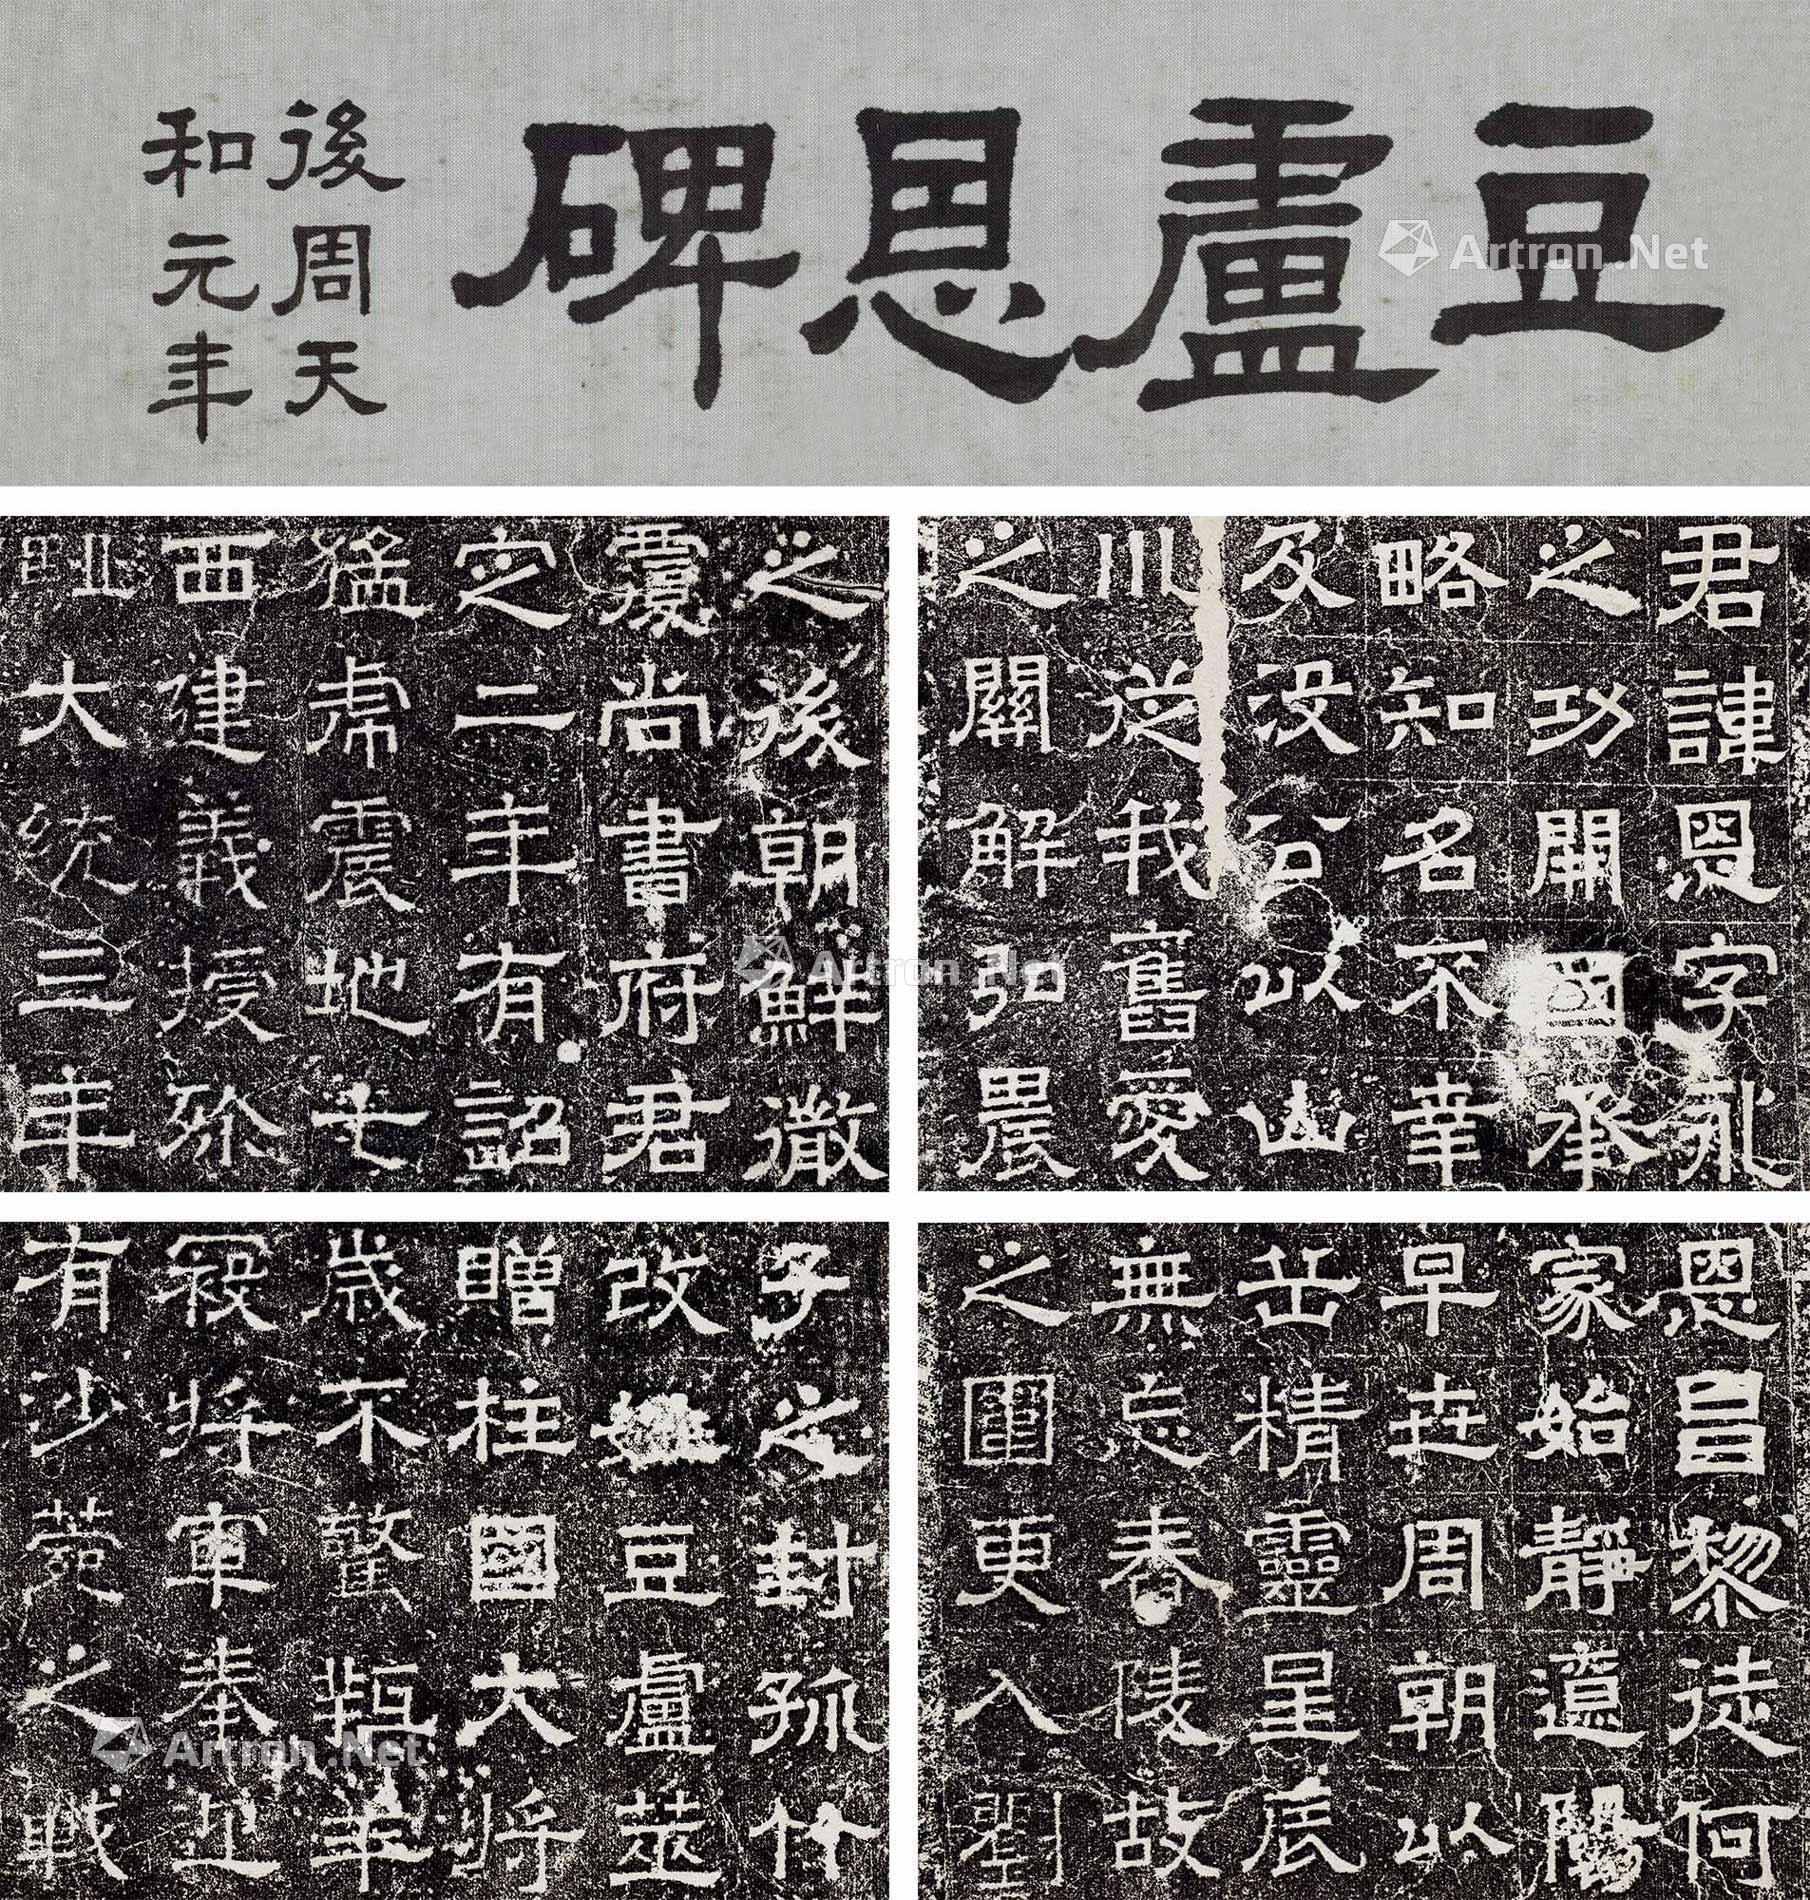 豆盧恩碑
後周天
和元年
君諱恩字永
之功開國承
略知名不幸
及沒公以山
川從我舊愛
之關解弘農
之後朝鮮微
尚書府君
定二年有詔
猛虎震地七
西建義授殄
大統三年
恩昌黎徒何
家始靜遼陽
早世周朝以
岳精靈星辰
無忘舂陵故
之圍更入劉
子之封孤竹
改姓豆盧萇
贈柱國大將
歲不驚羊
寇將軍奉迎
有沙苑之戰
Artron.Net
Artron.Net
Artron.Net